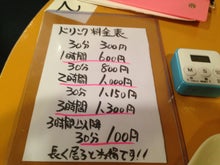 ドリンク料金表
30分 300円
1時間 600円
30分 800円
2時間 1,000円
30分 1,150円
3時間 1,300円
3時間以降
30分 100円
長く居るとお得です!!